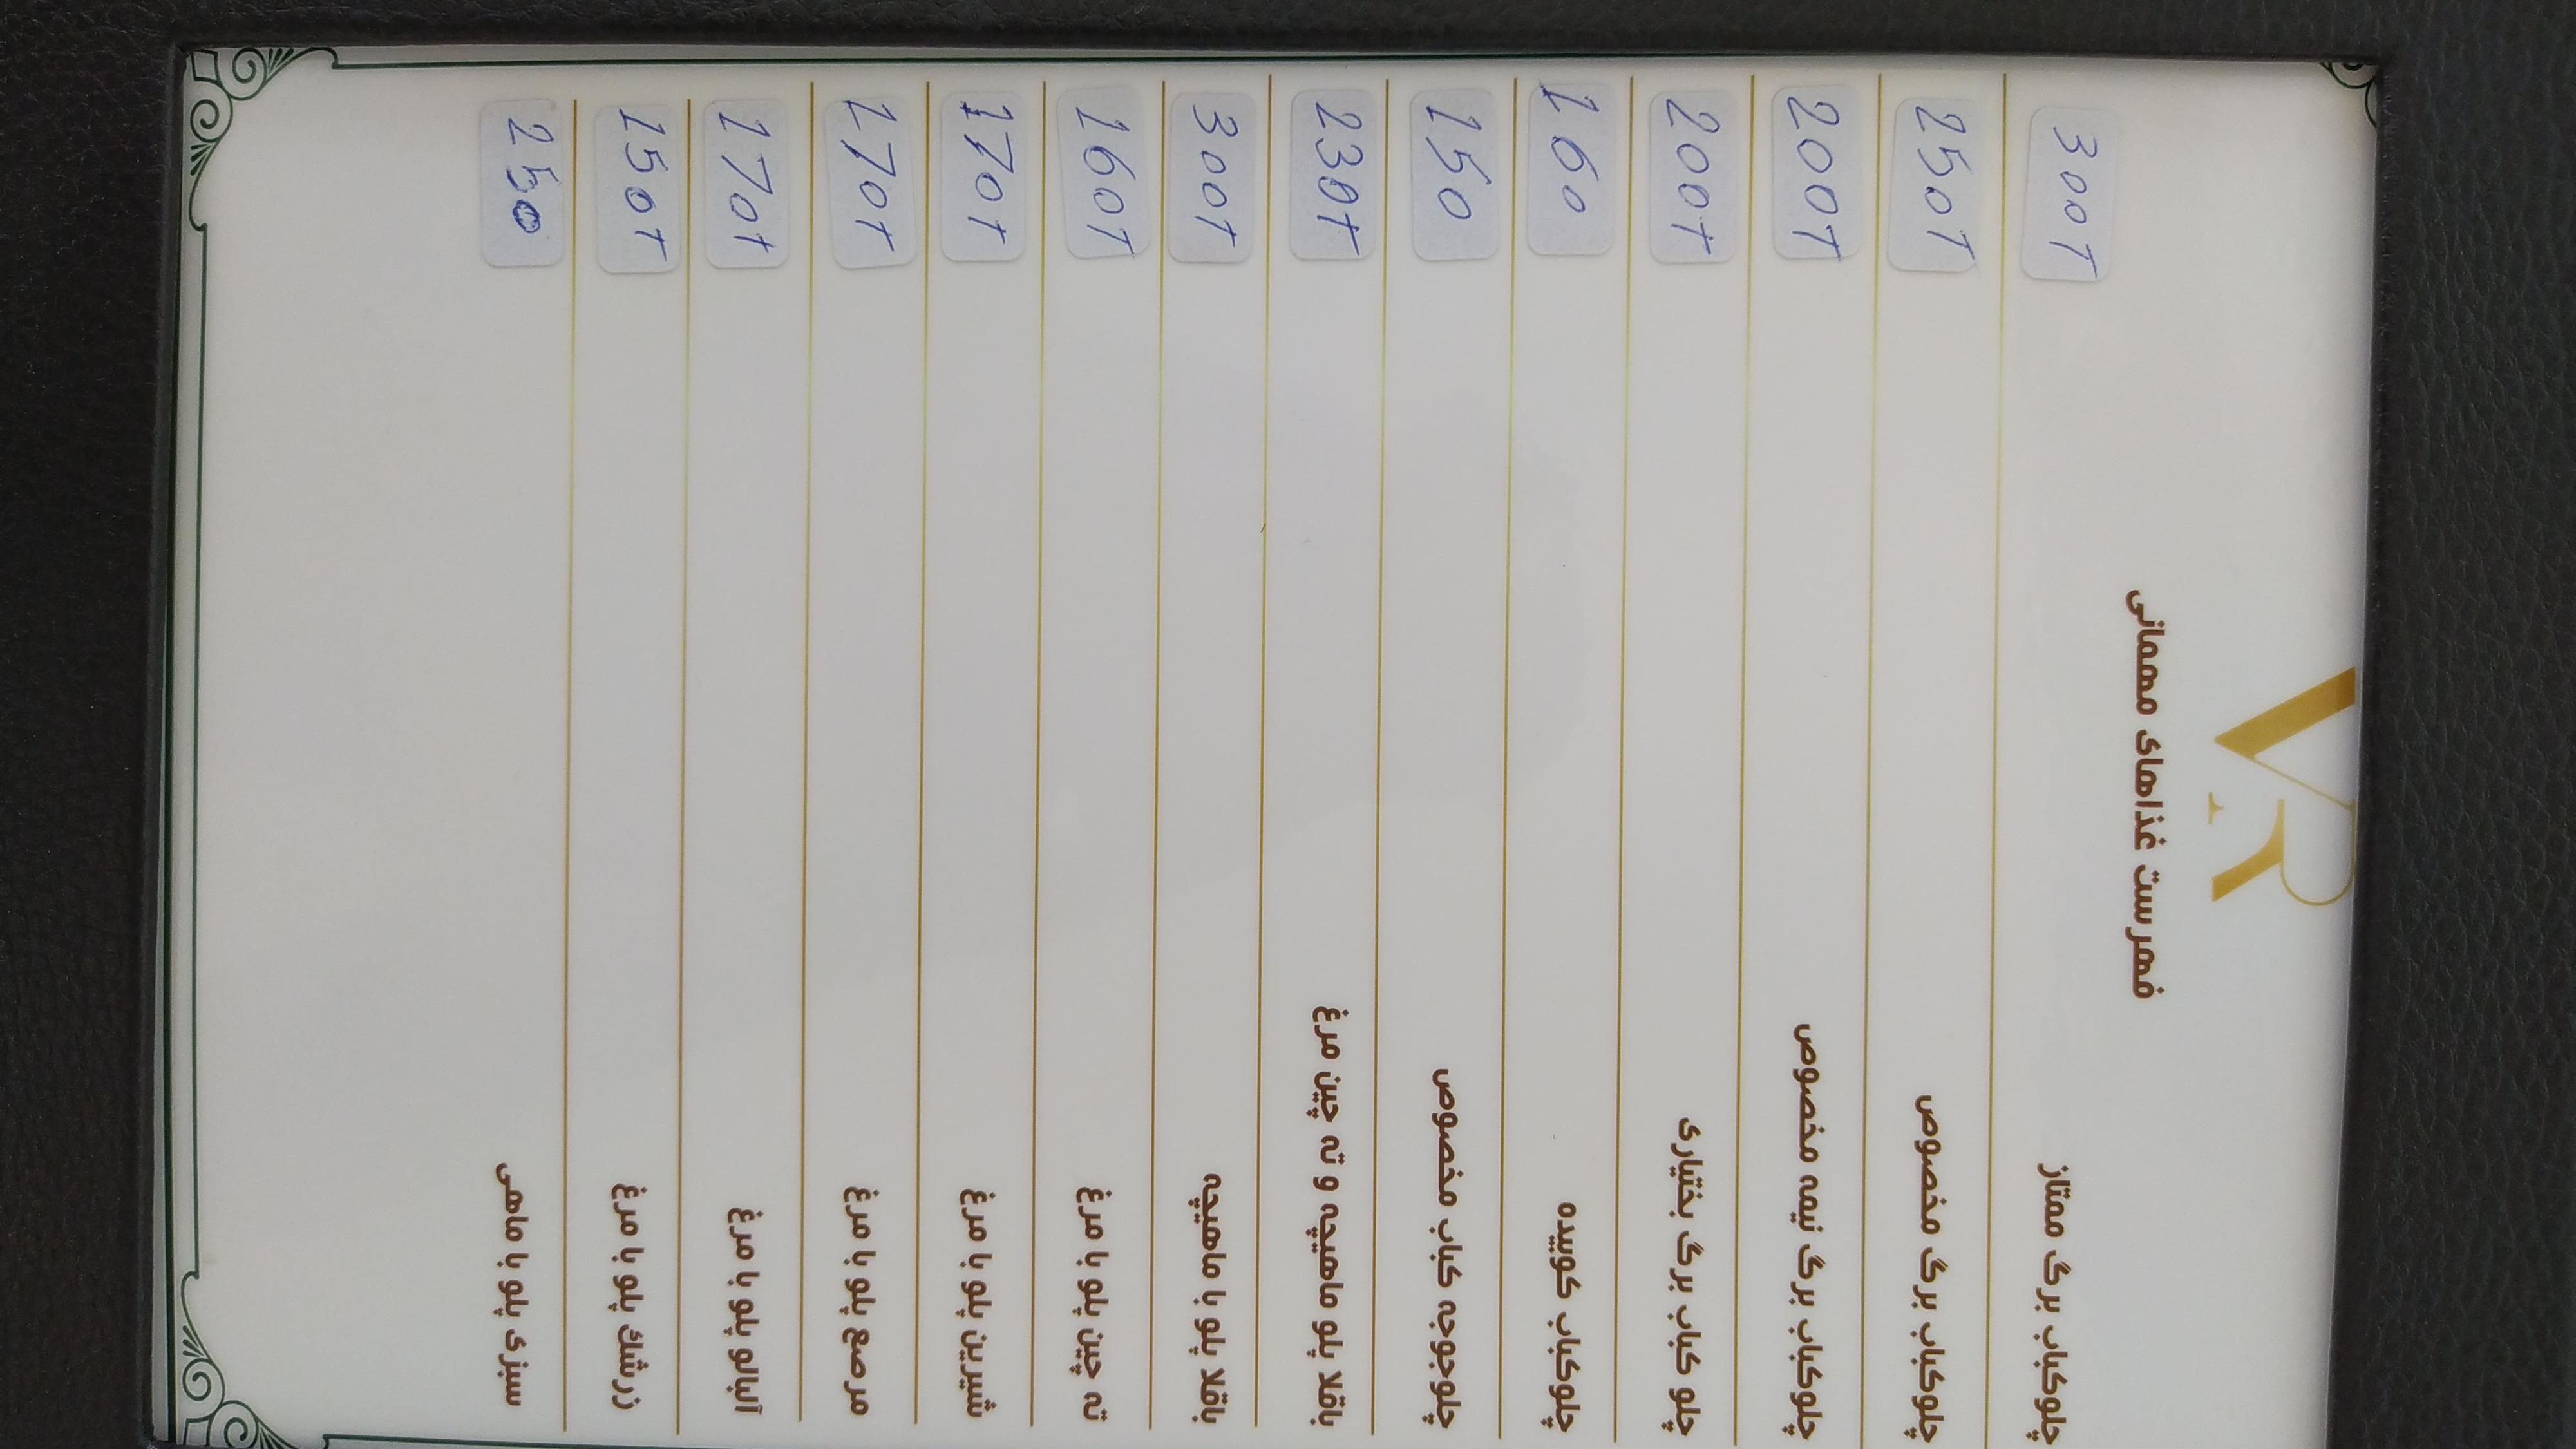 VR
فهرست غذاهای مهمانی
چلوکباب برگ ممتاز 300T
چلوکباب برگ مخصوص 250T
چلوکباب برگ نیمه مخصوص 200T
چلو کباب برگ بختیاری 200T
چلوکباب کوبیده 160
چلوجوجه کباب مخصوص 150
باقلا پلو ماهیچه و ته چین مرغ 230T
باقلا پلو با ماهیچه 300T
ته چین پلو با مرغ 160T
شیرین پلو با مرغ 170T
مرصع پلو با مرغ 170T
آلبالو پلو با مرغ 170T
زرشک پلو با مرغ 150T
سبزی پلو با ماهی 250